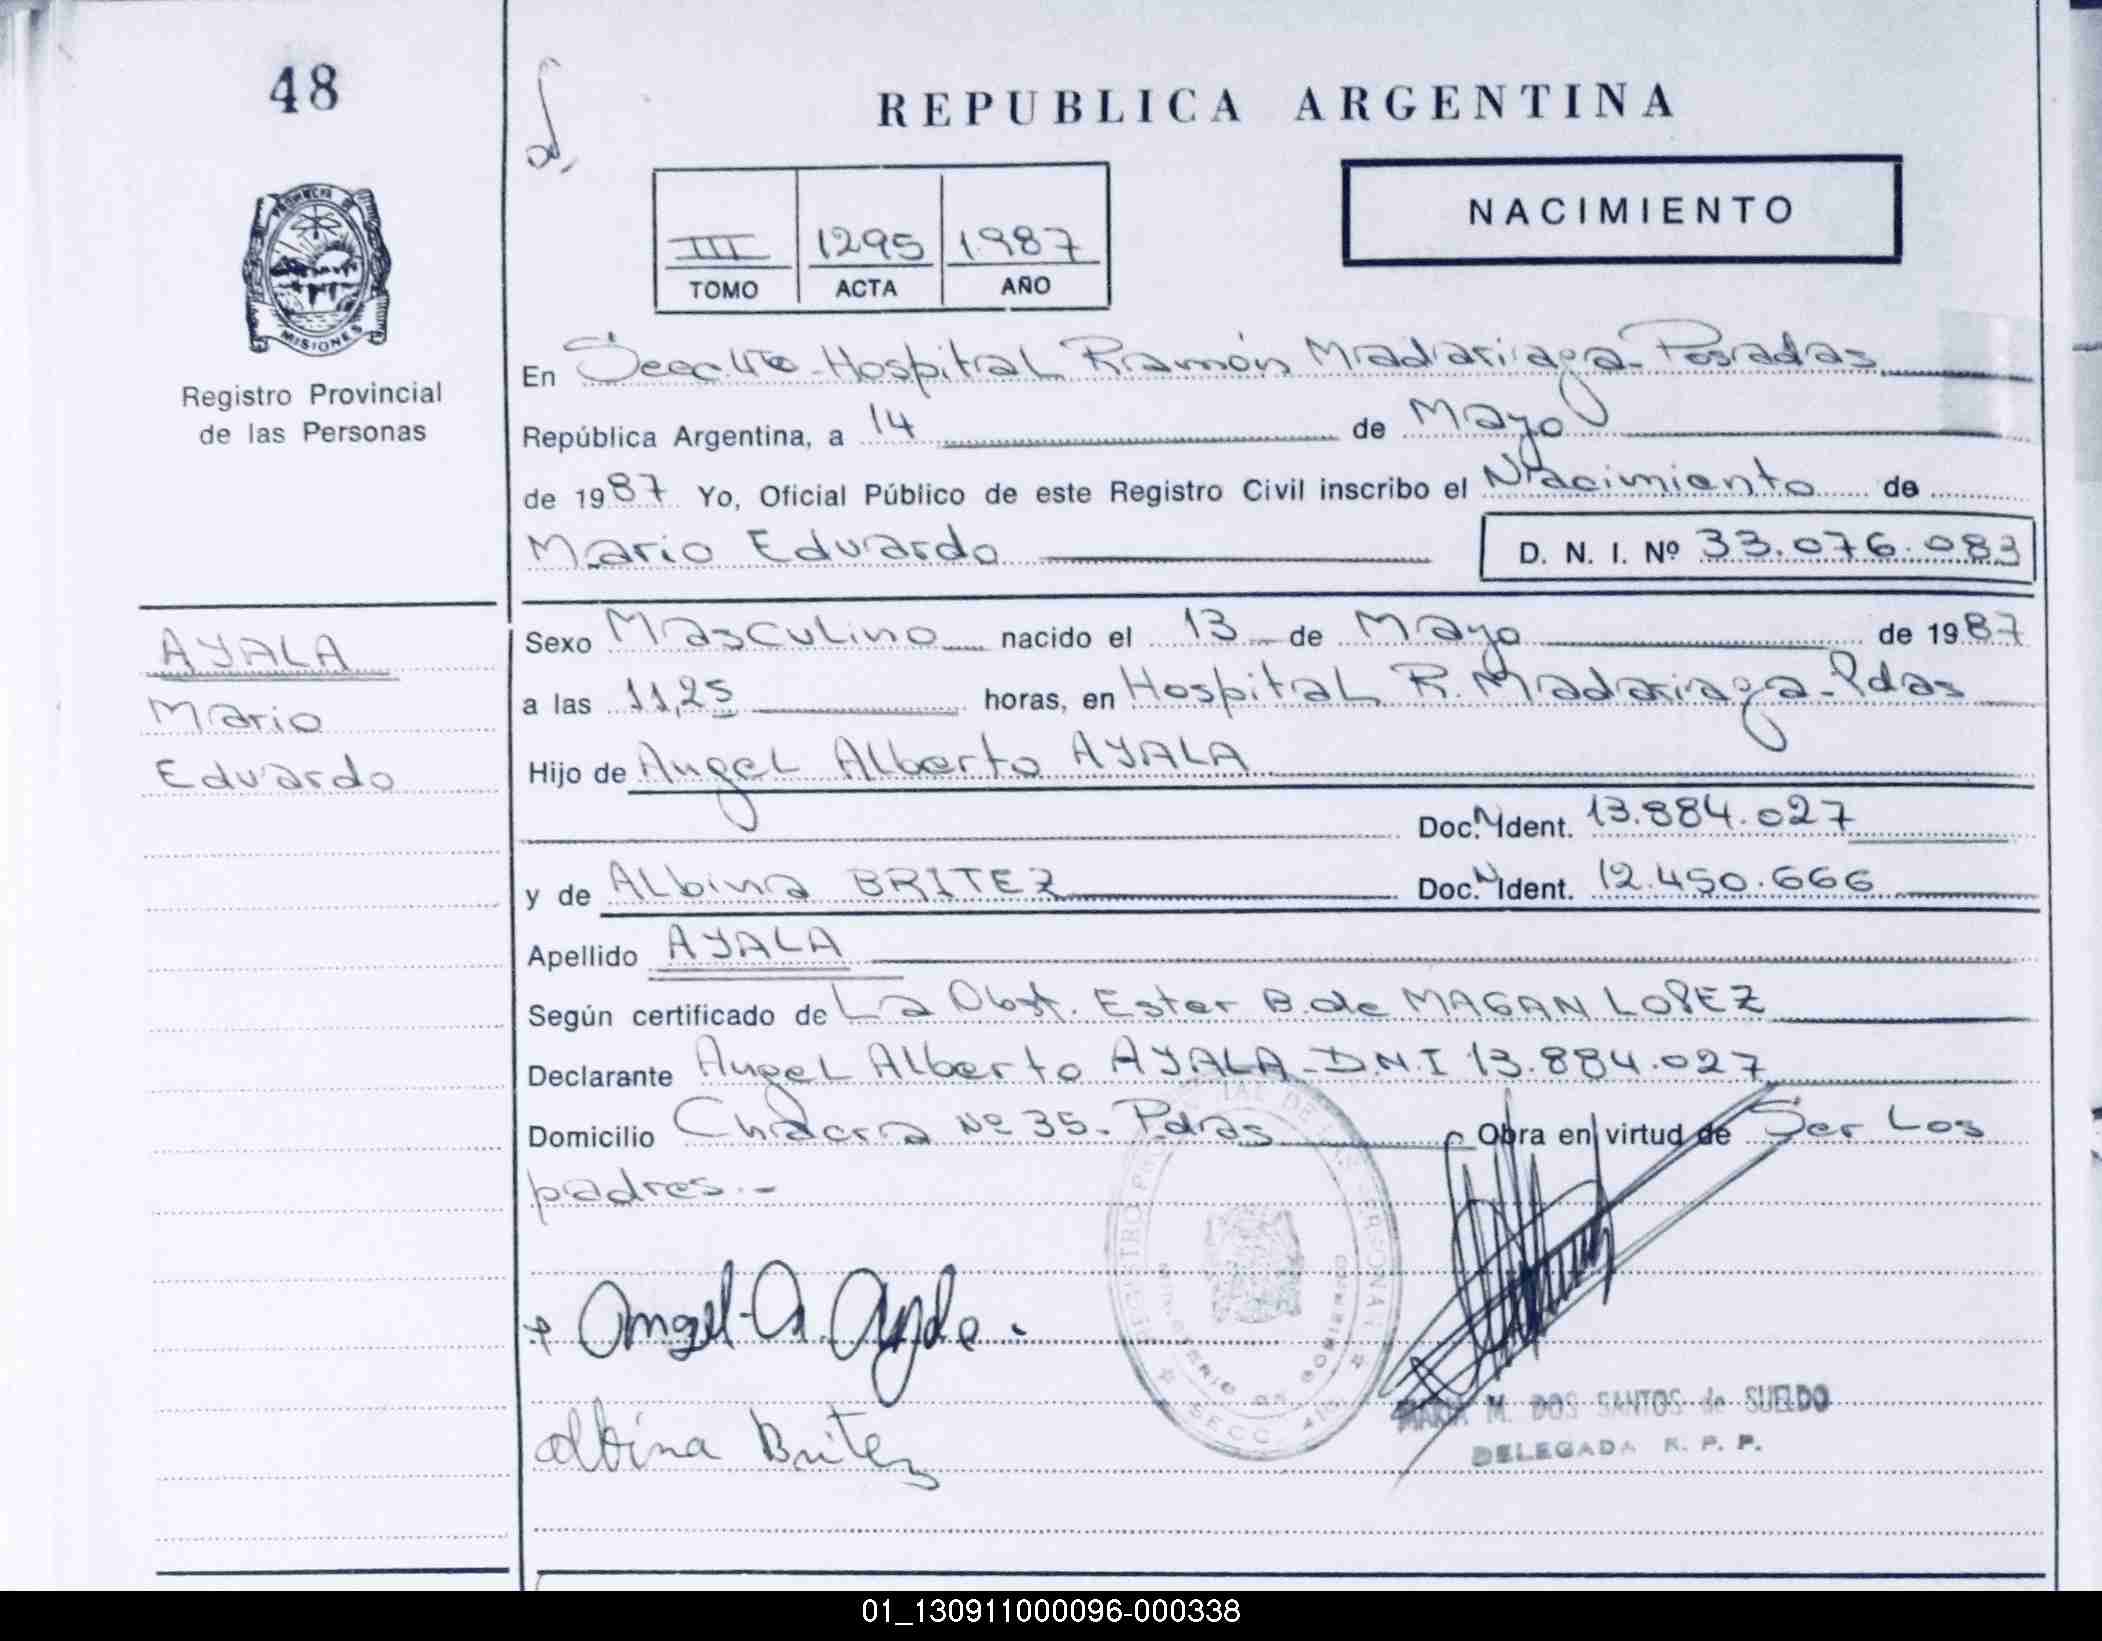 48
REPUBLICA ARGENTINA
NACIMIENTO
III 1295 1987
TOMO ACTA AÑO
MISIONES
Registro Provincial
de las Personas
En Secc. 4ta - Hospital Ramón Madariaga - Posadas
República Argentina, a 14 de Mayo
de 1987 Yo, Oficial Público de este Registro Civil inscribo el Nacimiento de
Mario Eduardo D. N. I. Nº 33.076.083
AYALA
Mario
Eduardo
Sexo Masculino nacido el 13 de Mayo de 1987
a las 11,25 horas, en Hospital R. Madariaga - Pdas
Hijo de Angel Alberto AYALA
Doc. Ident. 13.884.027
y de Albina BRITEZ Doc. Ident. 12.450.666
Apellido AYALA
Según certificado de La Obst. Ester B. de MAGAN LOPEZ
Declarante Angel Alberto AYALA - D.N.I 13.884.027
Domicilio Chacra Nº 35 - Pdas Obra en virtud de Ser Los
padres.-
Angel A. Ayala.
Albina Britez
REGISTRO PROVINCIAL DE LAS PERSONAS
MINISTERIO DE GOBIERNO
SECC. 4ta
MARIA M. DOS SANTOS de SUELDO
DELEGADA R. P. P.
01_130911000096-000338